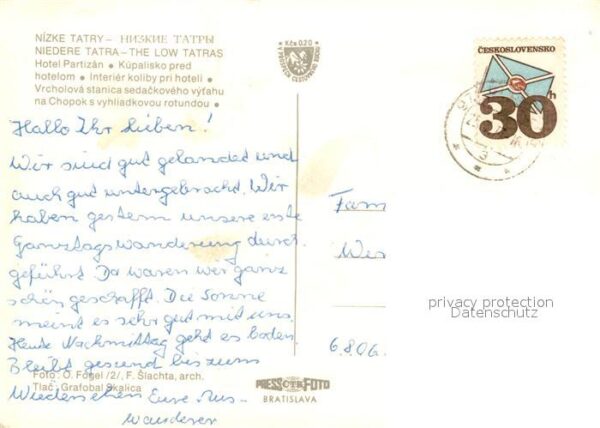 NÍZKE TATRY – НИЗКИЕ ТАТРЫ
NIEDERE TATRA – THE LOW TATRAS
Hotel Partizán • Kúpalisko pred
hotelom • Interiér koliby pri hoteli •
Vrcholová stanica sedačkového výťahu
na Chopok s vyhliadkovou rotundou •
Kčs 0,20
ČESKOSLOVENSKO
30h
Hallo Ihr Lieben!
Wir sind gut gelandet und
auch gut untergebracht. Wir
haben gestern unsere erste
Ganztagswanderung durch
geführt. Da waren wir ganz
schön geschafft. Die Sonne
meint es sehr gut mit uns.
Heute Nachmittag geht es baden.
Bleibt gesund bis zum
Foto: O. Fogel /2/, F. Šlachta, arch.
Tlač: Grafobal Skalica
Wiedersehen Eure Aus-
wanderer
Fam
Wer
6.8.06.
privacy protection
Datenschutz
PRESSFOTO
BRATISLAVA